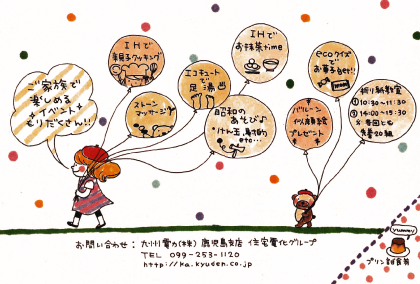 ご家族で
楽しめる
イベント
もりだくさん!!
IHで
親子クッキング
ストーン
マッサージ
エコキュートで
足湯
IHで
お抹茶time
昭和の
あそび♪
・けん玉、射的
etc...
ecoクイズ
で
お菓子get!!
バルーン
似顔絵
プレゼント
折り紙教室
①10:30～11:30
②14:00～15:30
※各回とも
先着20組
yummy
プリン試食等
お問い合わせ：九州電力(株) 鹿児島支店 住宅電化グループ
TEL 099-253-1120
http://ka.kyuden.co.jp